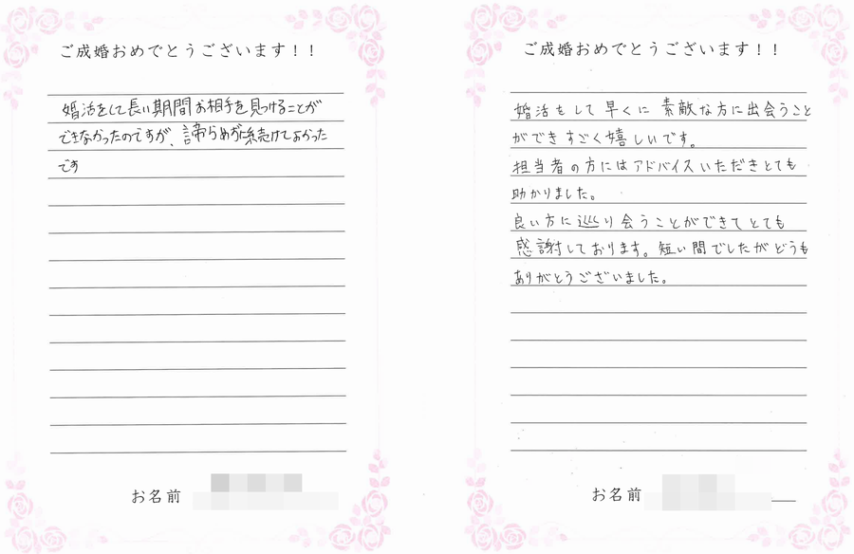 ご成婚おめでとうございます！！
婚活をして長い期間お相手を見つけることが
できなかったのですが、諦らめずに続けてよかった
です
お名前
ご成婚おめでとうございます！！
婚活をして早くに素敵な方に出会うこと
ができすごく嬉しいです。
担当者の方にはアドバイスいただきとても
助かりました。
良い方に巡り会うことができてとても
感謝しております。短い間でしたがどうも
ありがとうございました。
お名前